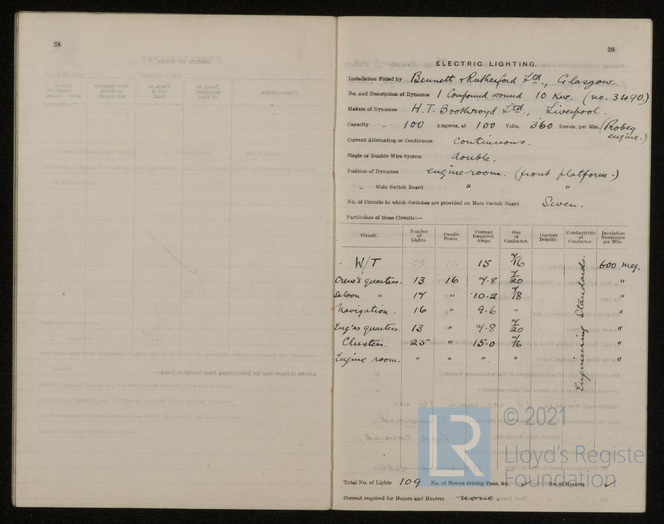 38
39
ELECTRIC LIGHTING.
Installation Fitted by Bennett & Rutherford Ltd., Glasgow.
No. and Description of Dynamos 1 Compound wound 10 Kw. (No. 3490)
Makers of Dynamos H.T. Boothroyd Ltd., Liverpool.
Capacity " 100 Amperes, at 100 Volts, 360 Revols. per Min. (Robey engine.)
Current Alternating or Continuous Continuous.
Single or Double Wire System double.
Position of Dynamos engine room. (front platform.)
" Main Switch Board " "
No. of Circuits to which Switches are provided on Main Switch Board Seven.
Particulars of these Circuits:—
Circuit. Number of Lights. Candle Power. Current Required. Amps. Size of Conductor. Current Density. Conductivity of Conductor. Insulation Resistance per Mile.
W/T 15 7/16 600 meg.
Crew's quarters. 13 16 7.8 7/20 "
Saloon " 17 " 10.2 7/18 "
Navigation. 16 " 9.6 " "
Eng'rs quarters. 13 " 7.8 7/20 "
Clusters. 25 " 15.0 7/16 "
Engine room. " " " " "
Engineering Standards.
Total No. of Lights 109 No. of Motors driving Fans, &c. No. of Heaters
Current required for Motors and Heaters none.
LR © 2021
Lloyd's Register
Foundation